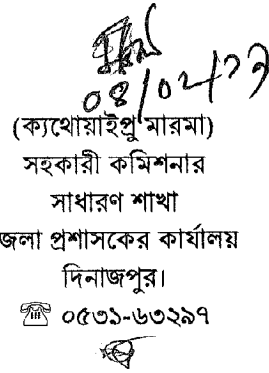 (ক্যথোয়াইপ্রু মারমা)
সহকারী কমিশনার
সাধারণ শাখা
জলা প্রশাসকের কার্যালয়
দিনাজপুর।
☏ ০৫৩১-৬৩২৯৭